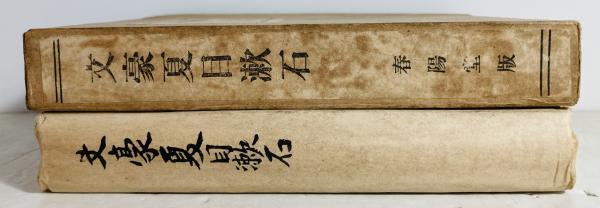 文豪夏目漱石
春陽堂版
文豪夏目漱石